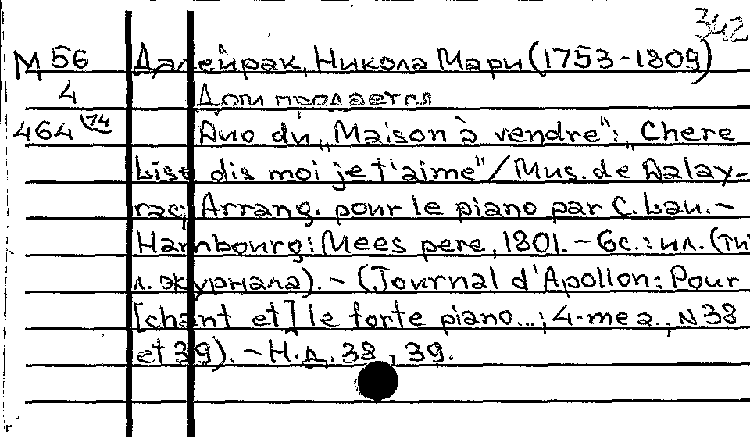 342
М 56 Далейрак, Никола Мари (1753-1809)
4 Дом продается
464 74 Duo du „Maison à vendre": „Chere
Lise dis moi je t'aime"/Mus. de Dalay-
rac, Arrang. pour le piano par C. Lau. -
Hambourg: Mees pere, 1801. - 6с.: ил. (ти
л. журнала). - (Journal d'Apollon: Pour
[chant et] le forte piano...; 4-me a., N 38
et 39). - Н.д. 38, 39.